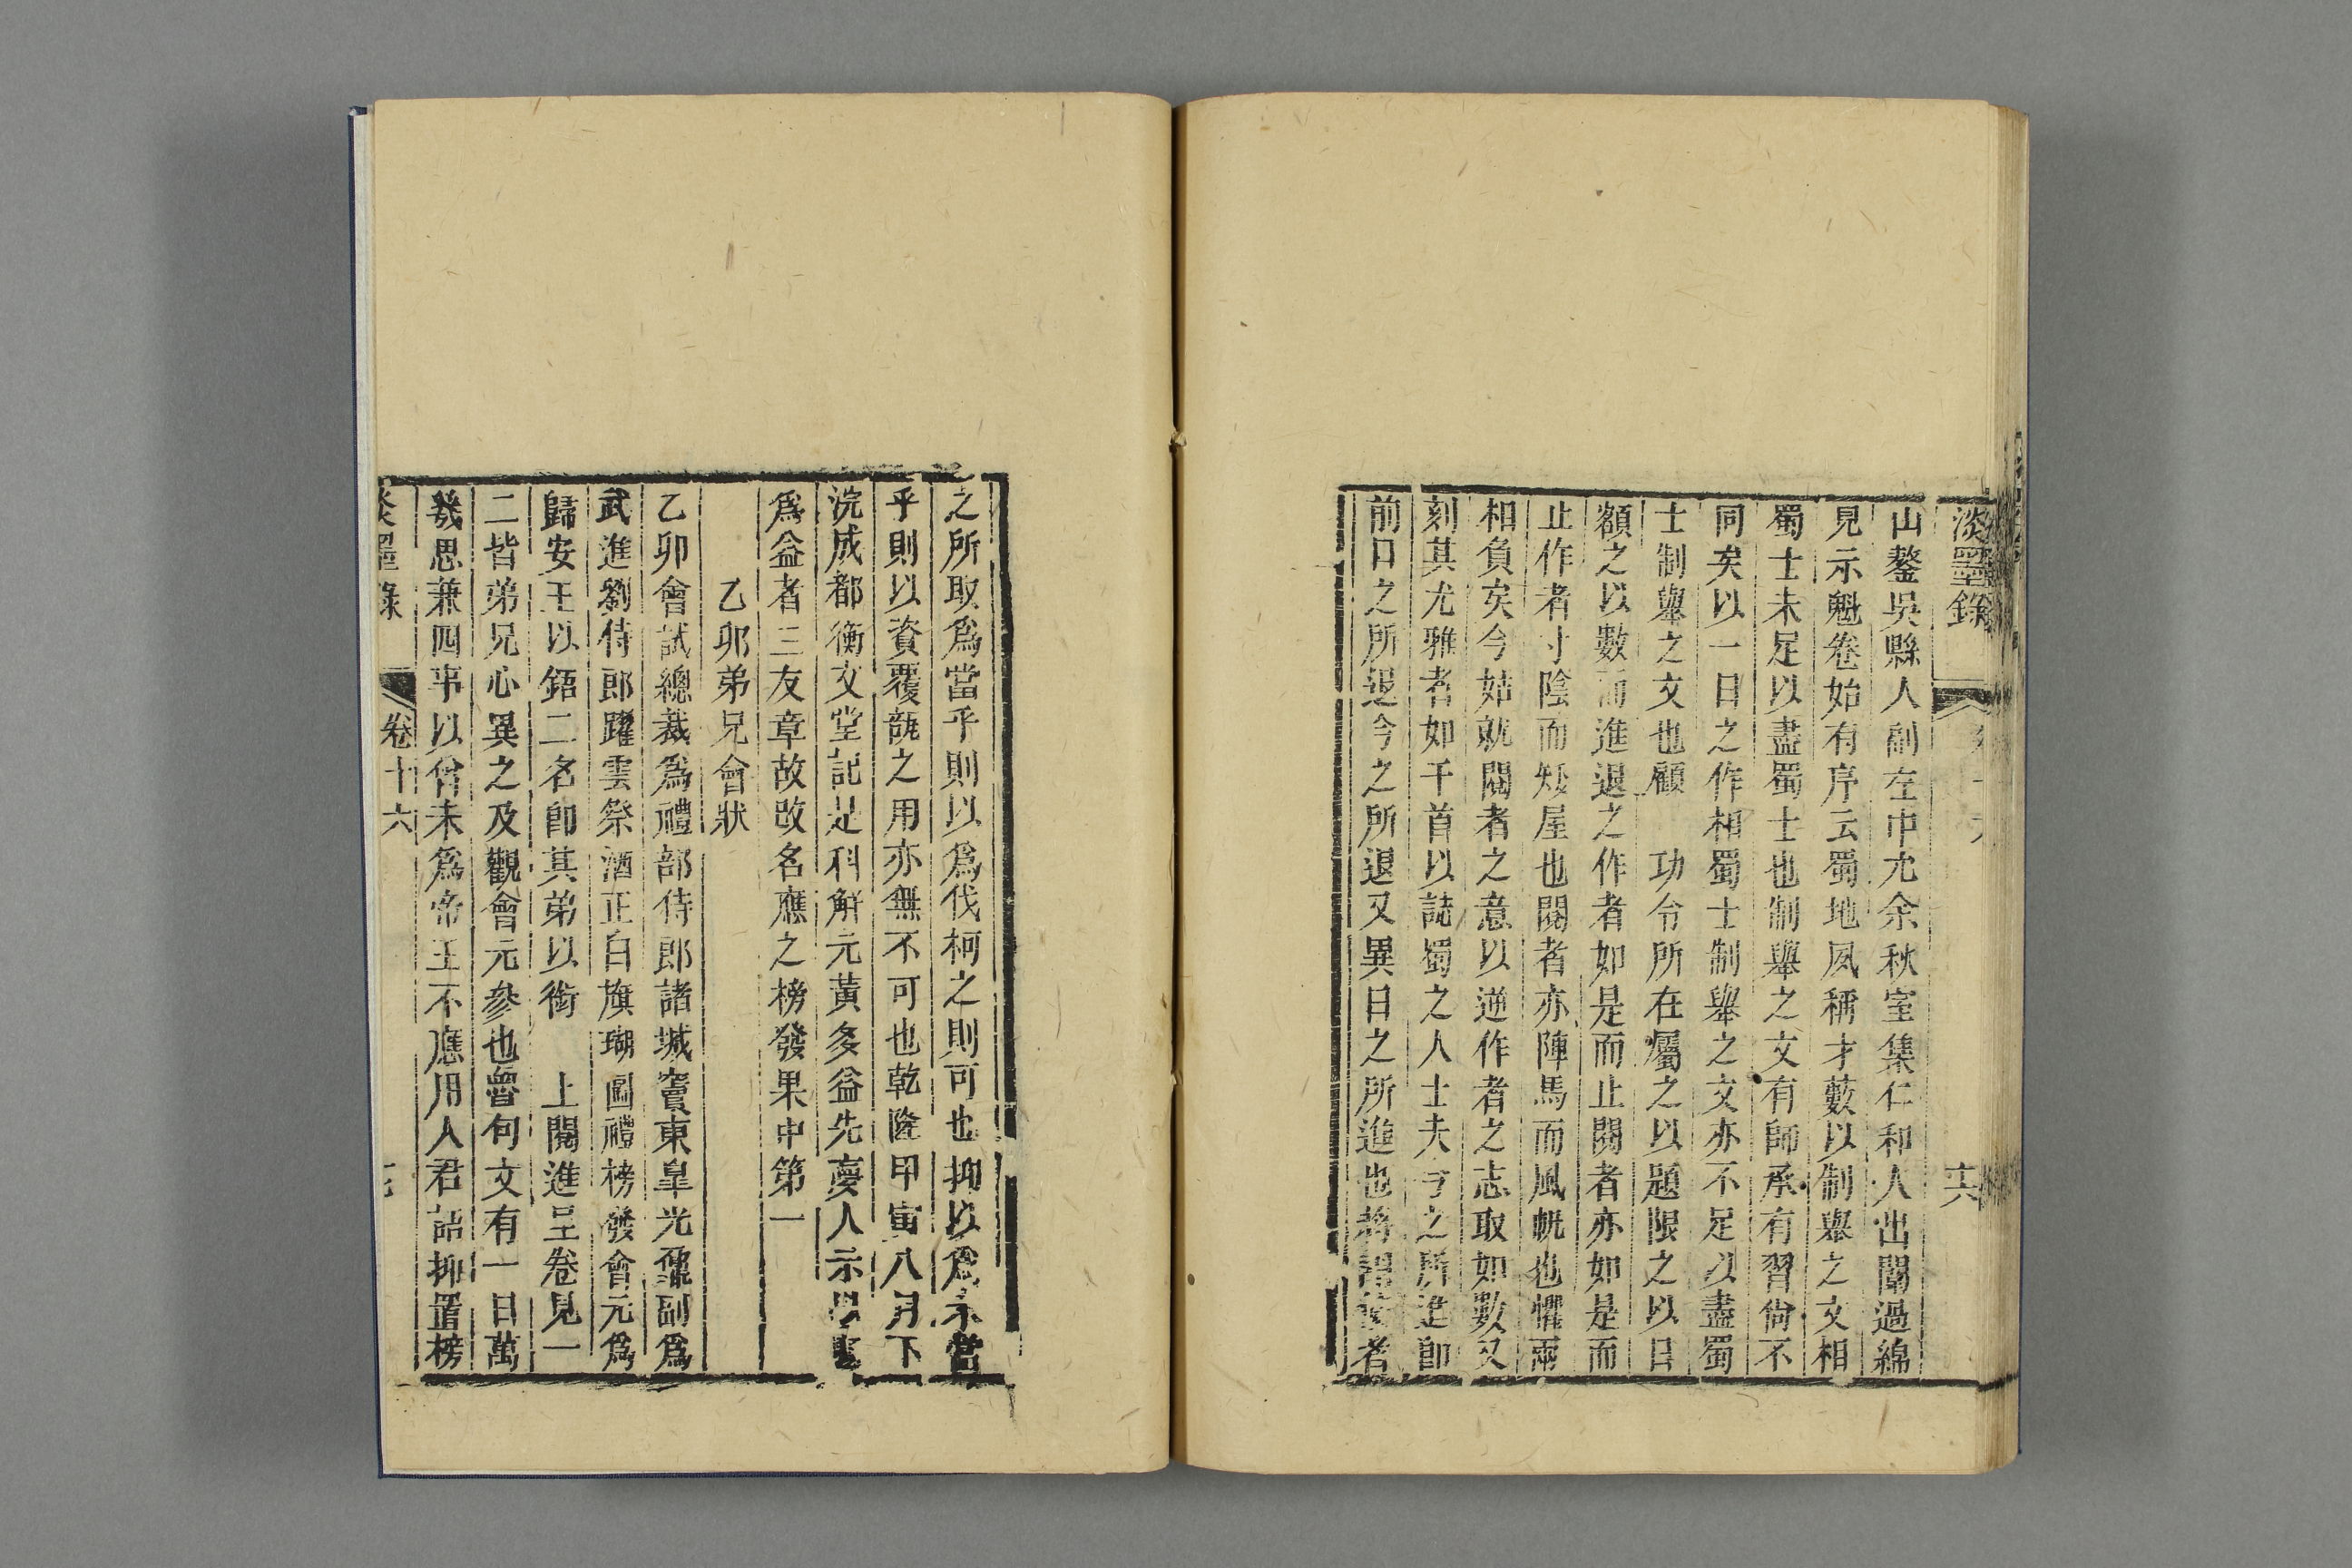 淡墨錄
十六
山鼇吳縣人副左中允余秋室集仁和人出闈過綿
見示魁卷始有序云蜀地夙稱才藪以制舉之文相
蜀士未足以盡蜀士也制舉之文有師承有習尚不
同矣以一日之作相蜀士制舉之文亦不足以盡蜀
士制舉之文也顧 功令所在屬之以題限之以日
額之以數而進退之作者如是而止閱者亦如是而
止作者寸陰而矮屋也閱者亦陣馬而風帆也懼兩
相負矣今姑就閱者之意以逆作者之志取如數又
刻其尤雅者如干首以誌蜀之人士夫今之所進卽
前日之所退今之所退又異日之所進也將謂者
之所取爲當乎則以爲伐柯之則可也抑以爲未當
乎則以資覆瓿之用亦無不可也乾隆甲寅八月下
浣成都衡文堂記是科解元黃多益先夢人示以
爲益者三友章故改名應之榜發果中第一
乙卯弟兄會狀
乙卯會試總裁爲禮部侍郎諸城竇東皐光鼐副爲
武進劉侍郎躍雲祭酒正白旗瑚圖禮榜發會元爲
歸安王以鋙二名卽其弟以銜 上閱進呈卷見一
二皆弟兄心異之及觀會元參也魯句文有一日萬
幾思兼四事以曾未爲帝王不應用人君語抑置榜
淡墨錄
卷十六